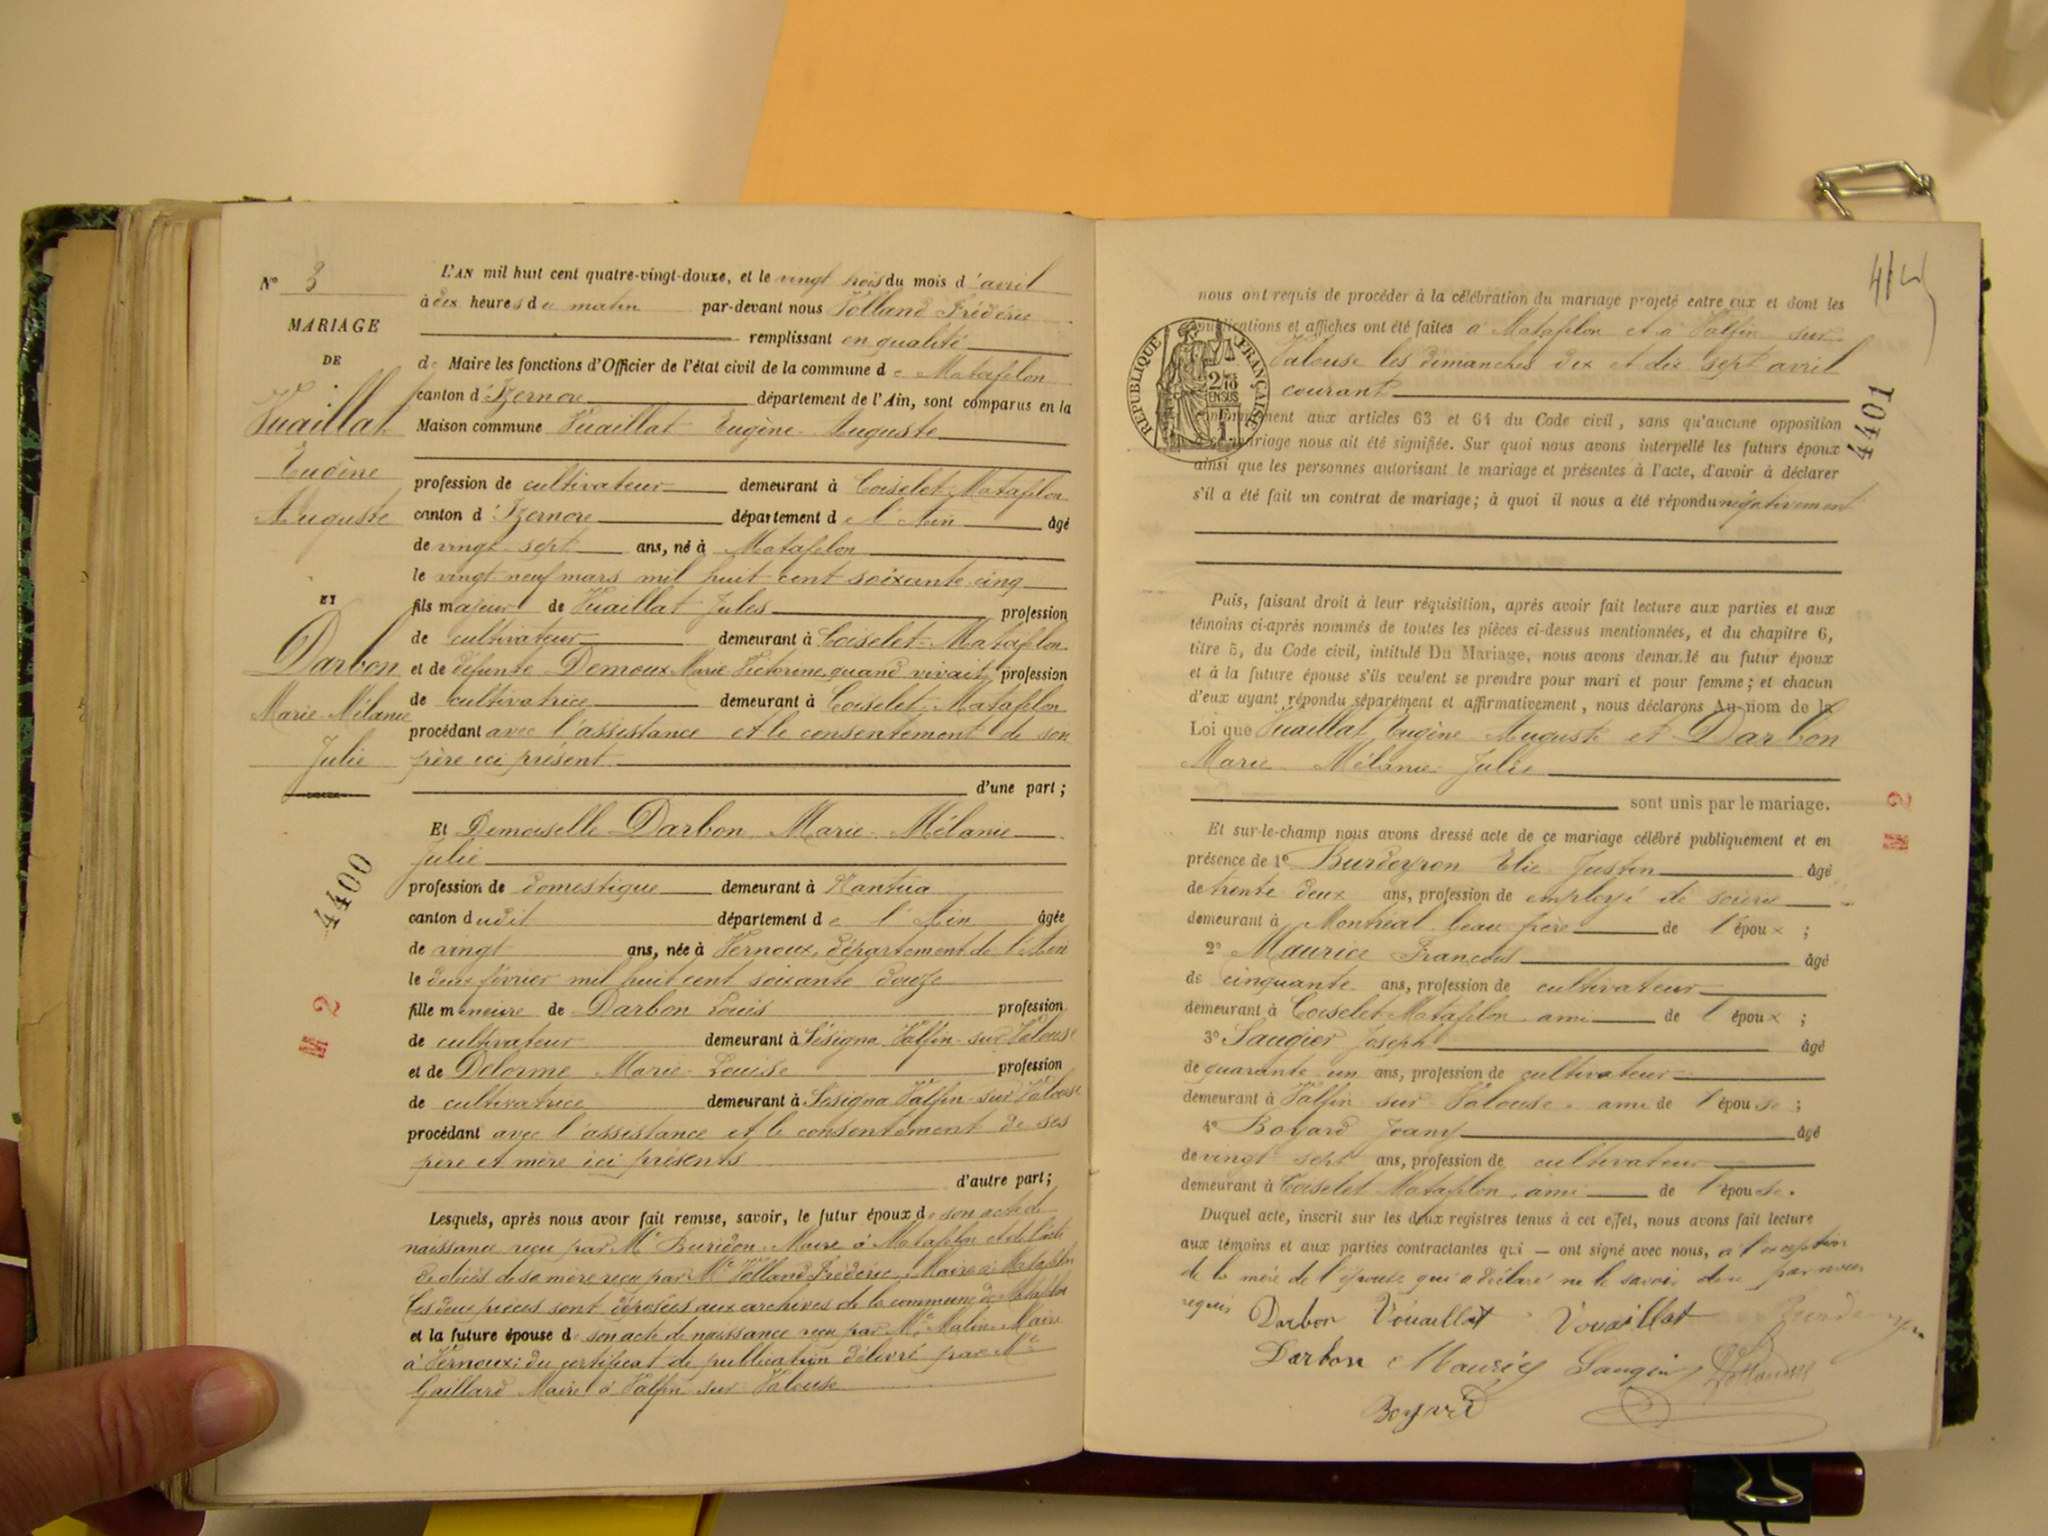 N° 3
MARIAGE
DE
Vuaillat
Eugène
Auguste
ET
Darbon
Marie Mélanie
Julie
4400
L'AN mil huit cent quatre-vingt-douze, et le vingt trois du mois d'avril
à dix heures du matin par-devant nous Volland Frédéric
remplissant en qualité
de Maire les fonctions d'Officier de l'état civil de la commune de Matafelon
canton d'Izernore département de l'Ain, sont comparus en la
Maison commune Vuaillat Eugène Auguste
profession de cultivateur demeurant à Coiselet Matafelon
canton d'Izernore département de l'Ain âgé
de vingt sept ans, né à Matafelon
le vingt neuf mars mil huit cent soixante cinq
fils majeur de Vuaillat Jules profession
de cultivateur demeurant à Coiselet-Matafelon
et de défunte Demoux Marie Victorine, quand vivait, profession
de cultivatrice demeurant à Coiselet-Matafelon
procédant avec l'assistance et le consentement de son
père ici présent
d'une part;
Et Demoiselle Darbon Marie Mélanie
Julie
profession de domestique demeurant à Nantua
canton dudit département de l'Ain âgée
de vingt ans, née à Vernoux, département de l'Ain
le deux février mil huit cent soixante douze
fille mineure de Darbon Louis profession
de cultivateur demeurant à Sésigna Valfin-sur-Valouse
et de Delorme Marie-Louise profession
de cultivatrice demeurant à Sésigna Valfin-sur-Valouse
procédant avec l'assistance et le consentement de ses
père et mère ici présents
d'autre part;
Lesquels, après nous avoir fait remise, savoir, le futur époux de son acte de
naissance reçu par Mr Buridon, Maire à Matafelon et de l'acte
de décès de sa mère reçu par Mr Volland Frédéric, Maire à Matafelon
Ces deux pièces sont déposées aux archives de la commune de Matafelon
et la future épouse de son acte de naissance reçu par Mr Malin Maire
à Vernoux; du certificat de publication délivré par Mr
Gaillard Maire à Valfin sur Valouse
nous ont requis de procéder à la célébration du mariage projeté entre eux et dont les
publications et affiches ont été faites à Matafelon et à Valfin sur
Valouse les dimanches dix et dix sept avril
courant
RÉPUBLIQUE FRANÇAISE
conformément aux articles 63 et 64 du Code civil, sans qu'aucune opposition
mariage nous ait été signifiée. Sur quoi nous avons interpellé les futurs époux
ainsi que les personnes autorisant le mariage et présentes à l'acte, d'avoir à déclarer
s'il a été fait un contrat de mariage; à quoi il nous a été répondu négativement
4401
Puis, faisant droit à leur réquisition, après avoir fait lecture aux parties et aux
témoins ci-après nommés de toutes les pièces ci-dessus mentionnées, et du chapitre 6,
titre 5, du Code civil, intitulé Du Mariage, nous avons demandé au futur époux
et à la future épouse s'ils veulent se prendre pour mari et pour femme; et chacun
d'eux ayant répondu séparément et affirmativement, nous déclarons Au nom de la
Loi que Vuaillat Eugène Auguste et Darbon
Marie Mélanie Julie
sont unis par le mariage.
Et sur-le-champ nous avons dressé acte de ce mariage célébré publiquement et en
présence de 1° Burdeyron Elie Justin âgé
de trente deux ans, profession de employé de soierie
demeurant à Montréal beau frère de l'époux;
2° Maurice François âgé
de cinquante ans, profession de cultivateur
demeurant à Coiselet-Matafelon, ami de l'époux;
3° Saugier Joseph âgé
de quarante un ans, profession de cultivateur
demeurant à Valfin sur Valouse, ami de l'épouse;
4° Boyard Joany âgé
de vingt sept ans, profession de cultivateur
demeurant à Coiselet Matafelon, ami de l'épouse.
Duquel acte, inscrit sur les deux registres tenus à cet effet, nous avons fait lecture
aux témoins et aux parties contractantes qui — ont signé avec nous, à l'exception
de la mère de l'épouse qui a déclaré ne le savoir de ce par nous
requis
Darbon Vouaillat Vouaillat
Darbon Maurice Saugier Volland
Boyard